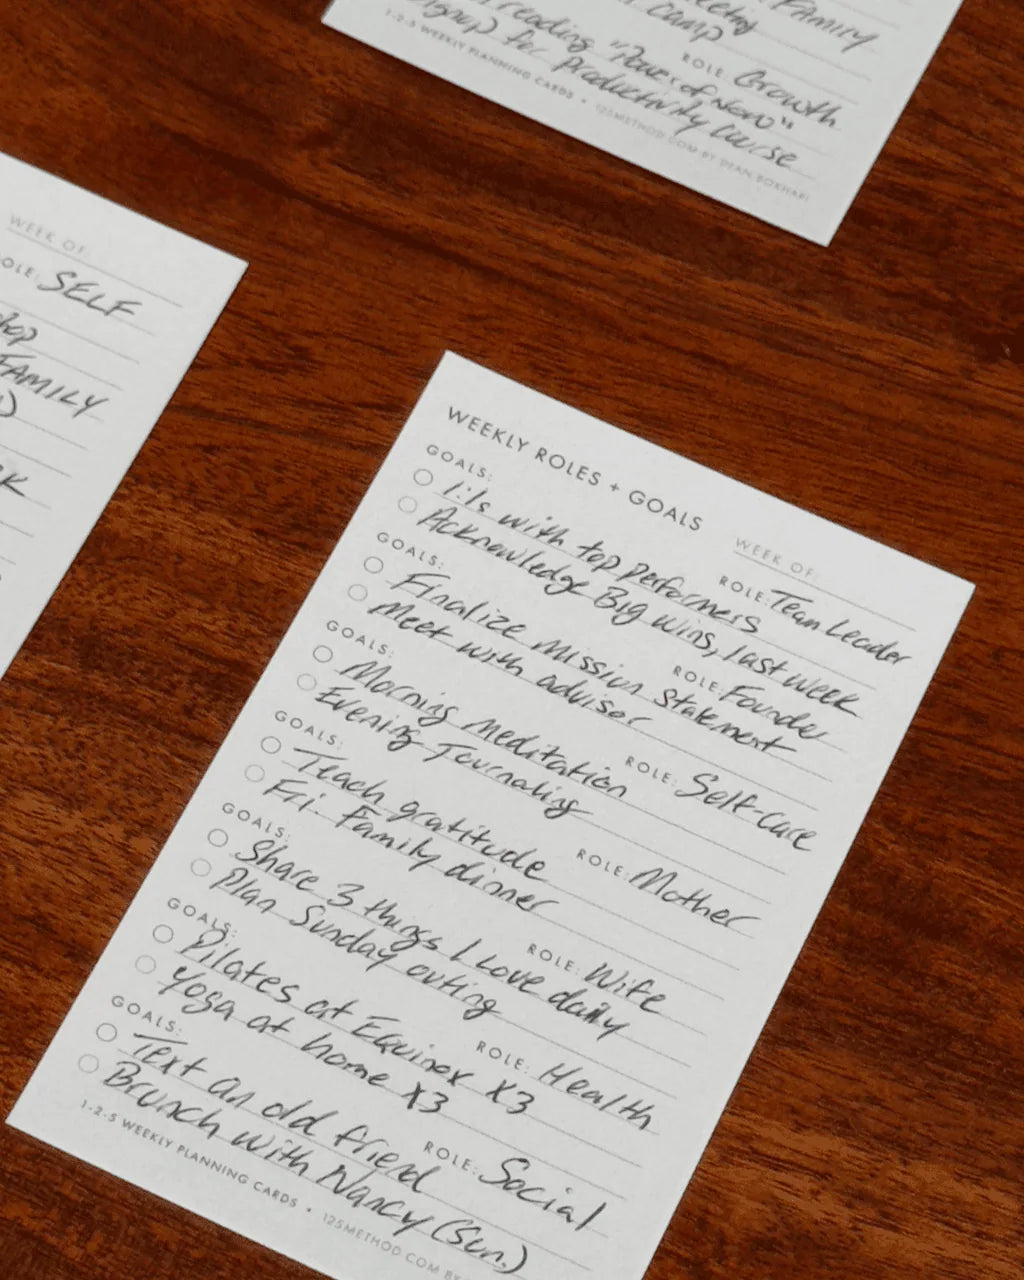 FAMILY
Camp
ROLE: Growth
reading "Power of Now"
for Productivity Course
1-2-5 WEEKLY PLANNING CARDS • 125METHOD.COM BY DEAN BOKHARI
WEEK OF:
ROLE: SELF
FAMILY
WEEKLY ROLES + GOALS
WEEK OF:
GOALS: ROLE: Team Leader
1:1s with top performers
Acknowledge Big wins, last week
GOALS: ROLE: Founder
Finalize Mission Statement
Meet with advisor
GOALS: ROLE: Self-care
Morning meditation
Evening Journaling
GOALS: ROLE: Mother
Teach gratitude
Fri. Family dinner
GOALS: ROLE: Wife
Share 3 things I Love daily
Plan Sunday outing
GOALS: ROLE: Health
Pilates at Equinox X3
Yoga at home X3
GOALS: ROLE: Social
Text an old friend
Brunch with Nancy (Sun.)
1-2-5 WEEKLY PLANNING CARDS • 125METHOD.COM BY